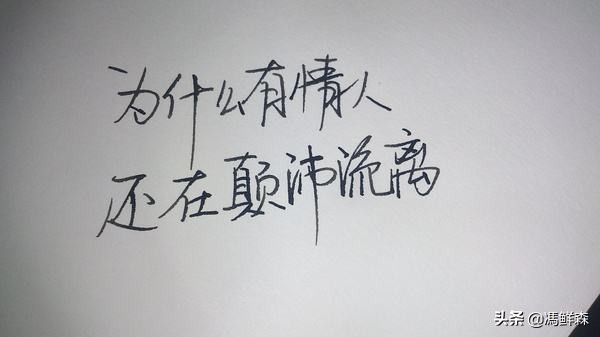 为什么有情人
还在颠沛流离
头条 @馮鲜森